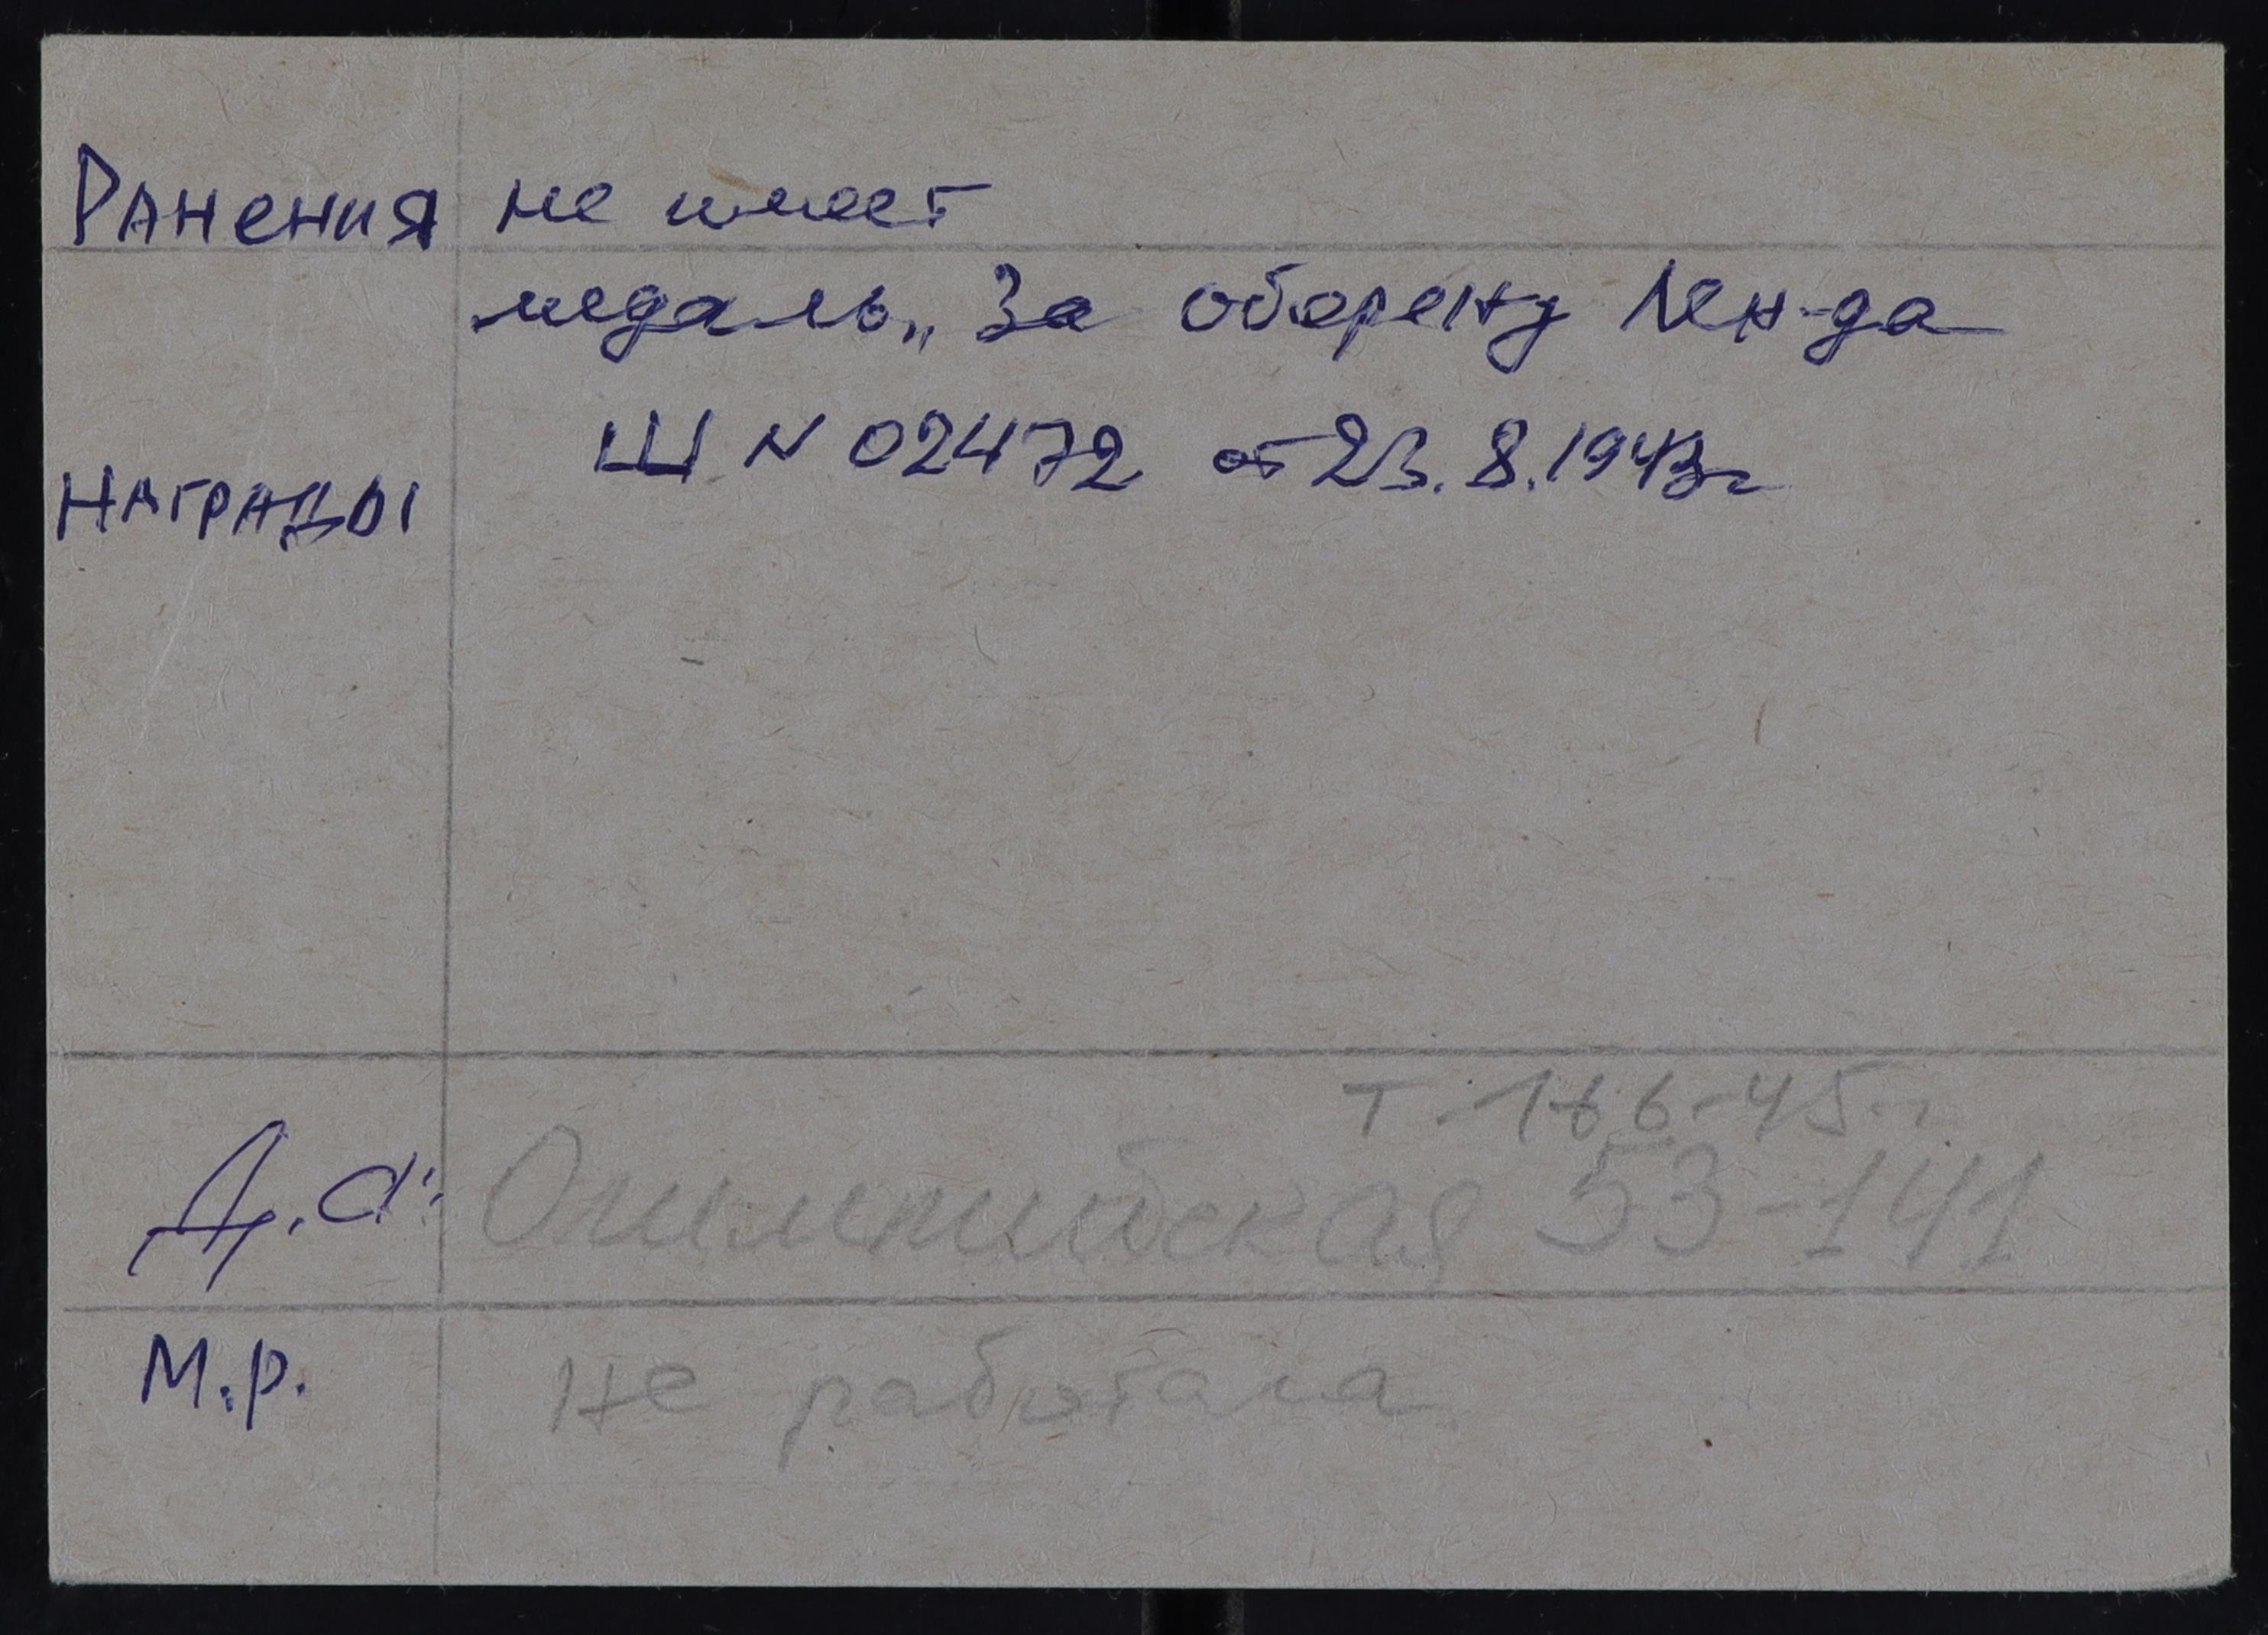 Ранения не имеет
медаль „За оборону Лен-да
Щ N 02472 от 23.8.1943г
Награды
т. 166-45.
Д.а: Олимпийская 53-141
М.р. не работала